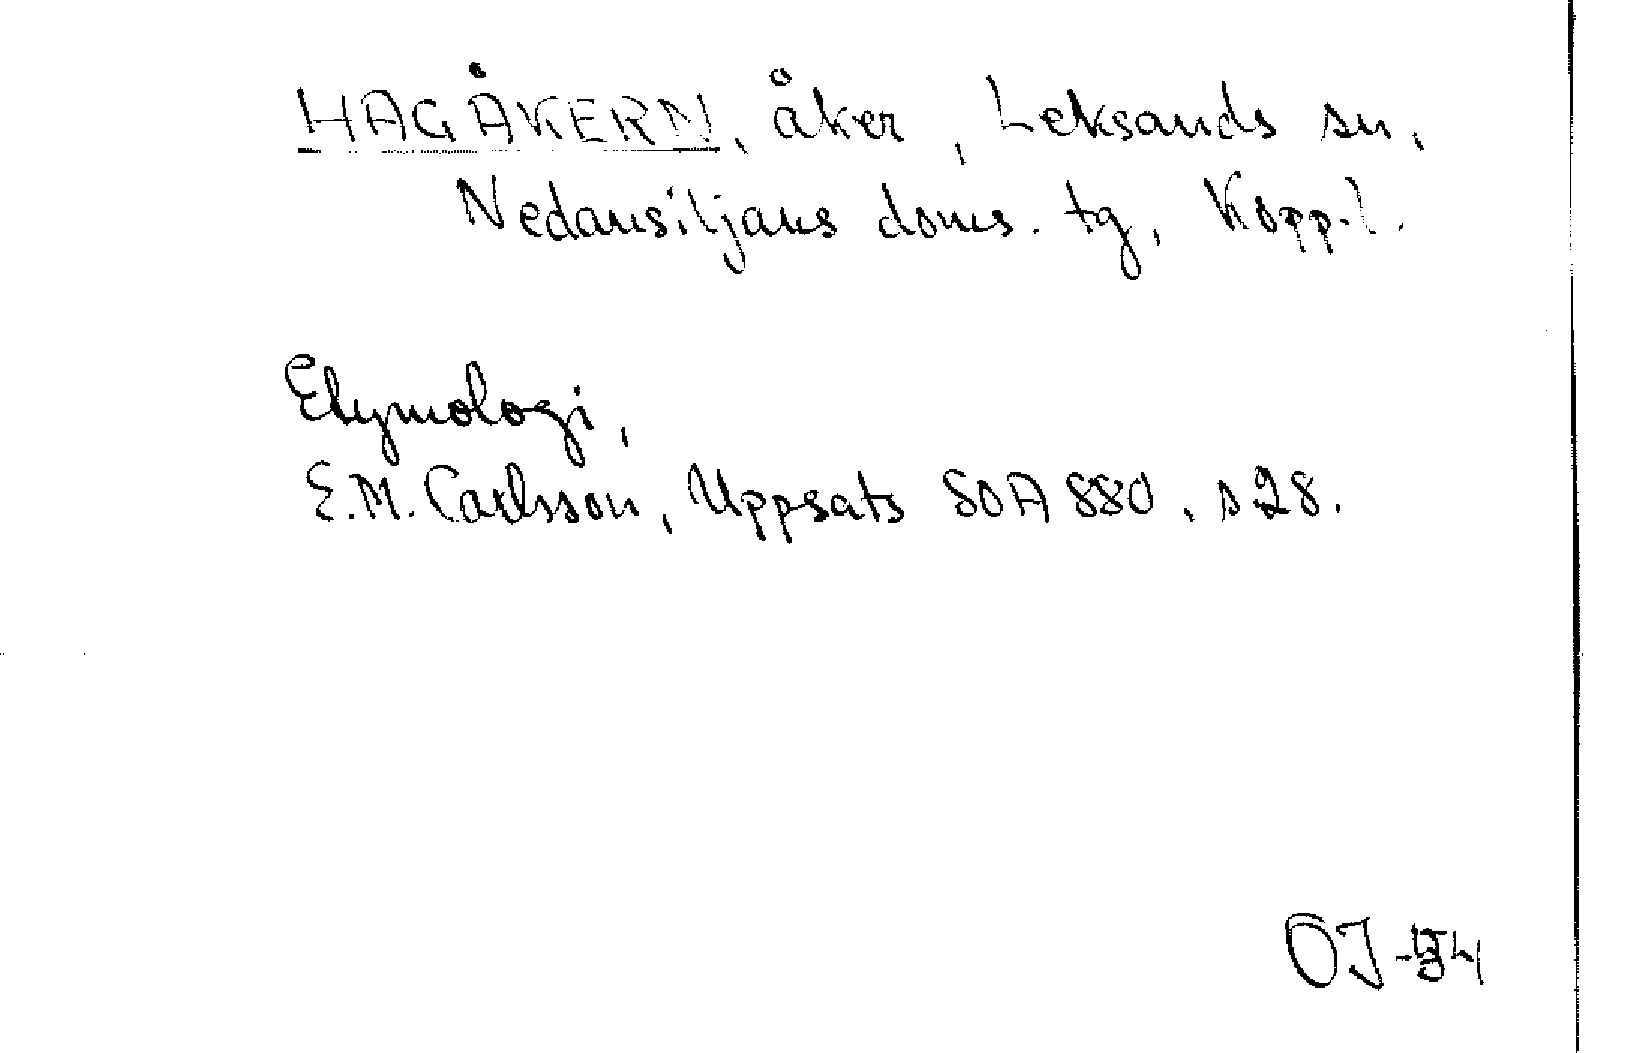 HAGÅKERN, åker, Leksands sn,
Nedansiljans doms. tg, Kopp. l.
Etymologi,
E.M. Carlsson, Uppsats SOA 880, s 28.
OJ